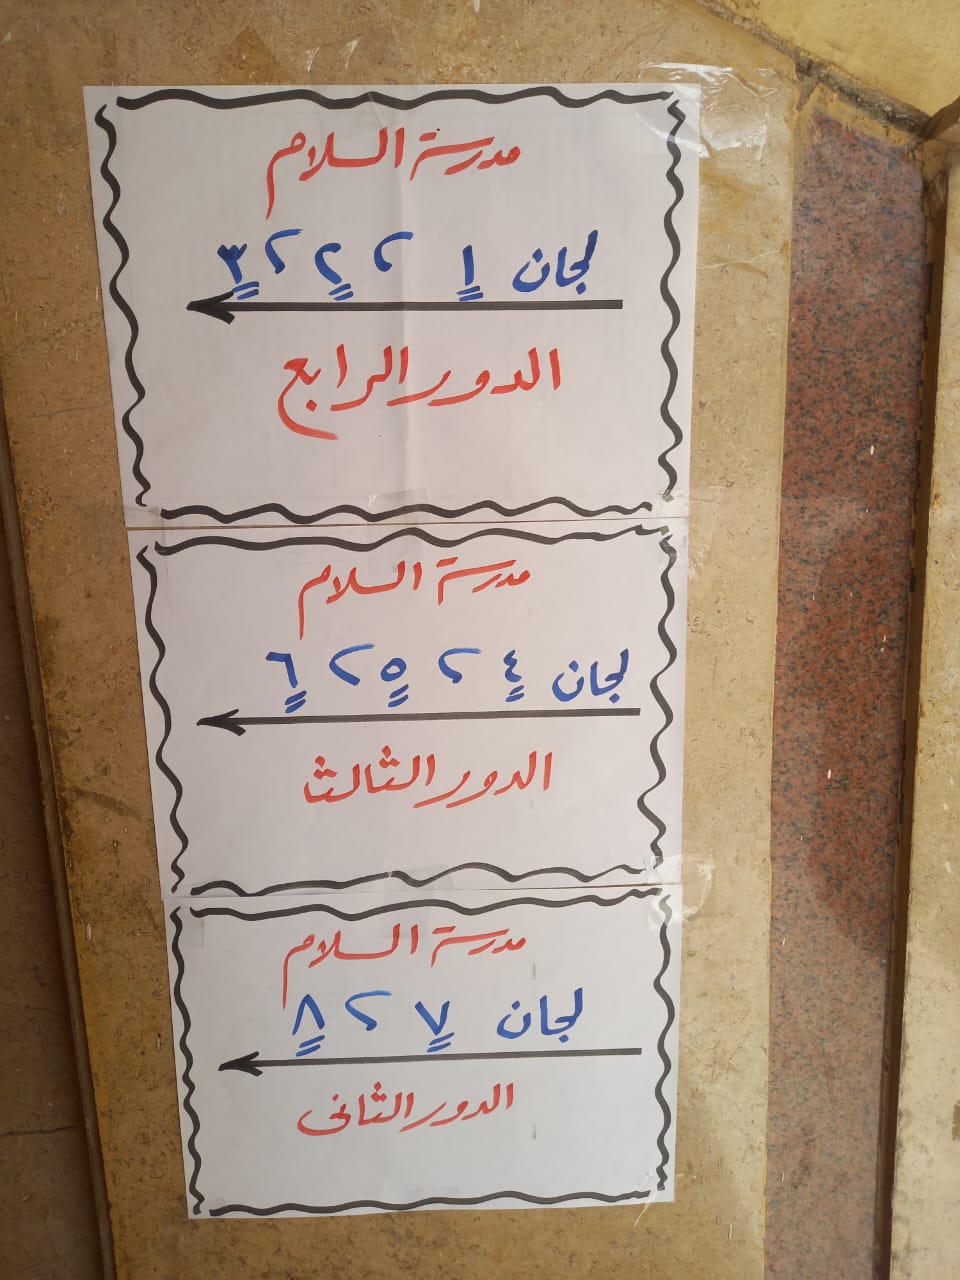 مدرسة السلام
لجان ١ ، ٢ ، ٣
الدور الرابع
مدرسة السلام
لجان ٤ ، ٥ ، ٦
الدور الثالث
مدرسة السلام
لجان ٧ ، ٨
الدور الثانى